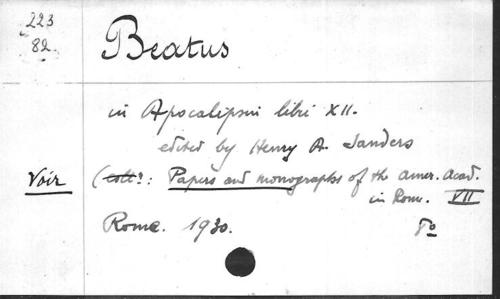 223
82.
Beatus
in Apocalipsin libri XII.
edited by Henry A. Sanders
Voir (Coll^n: Papers and monographs of the amer. acad.
in Rom. VII
Rome. 1930. 8º